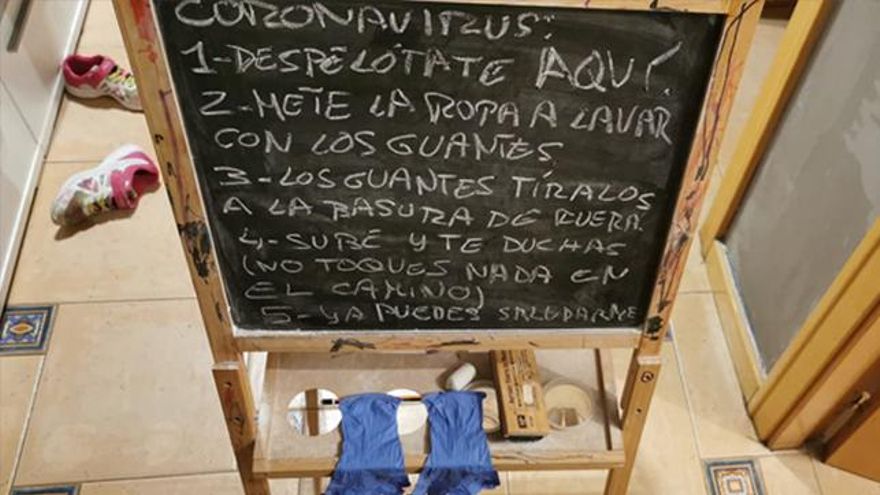 CORONAVIRUS:
1-DESPELÓTATE AQUÍ.
2-METE LA ROPA A LAVAR
CON LOS GUANTES.
3-LOS GUANTES TÍRALOS
A LA BASURA DE FUERA.
4-SUBE Y TE DUCHAS
(NO TOQUES NADA EN
EL CAMINO)
5-YA PUEDES SALUDARME